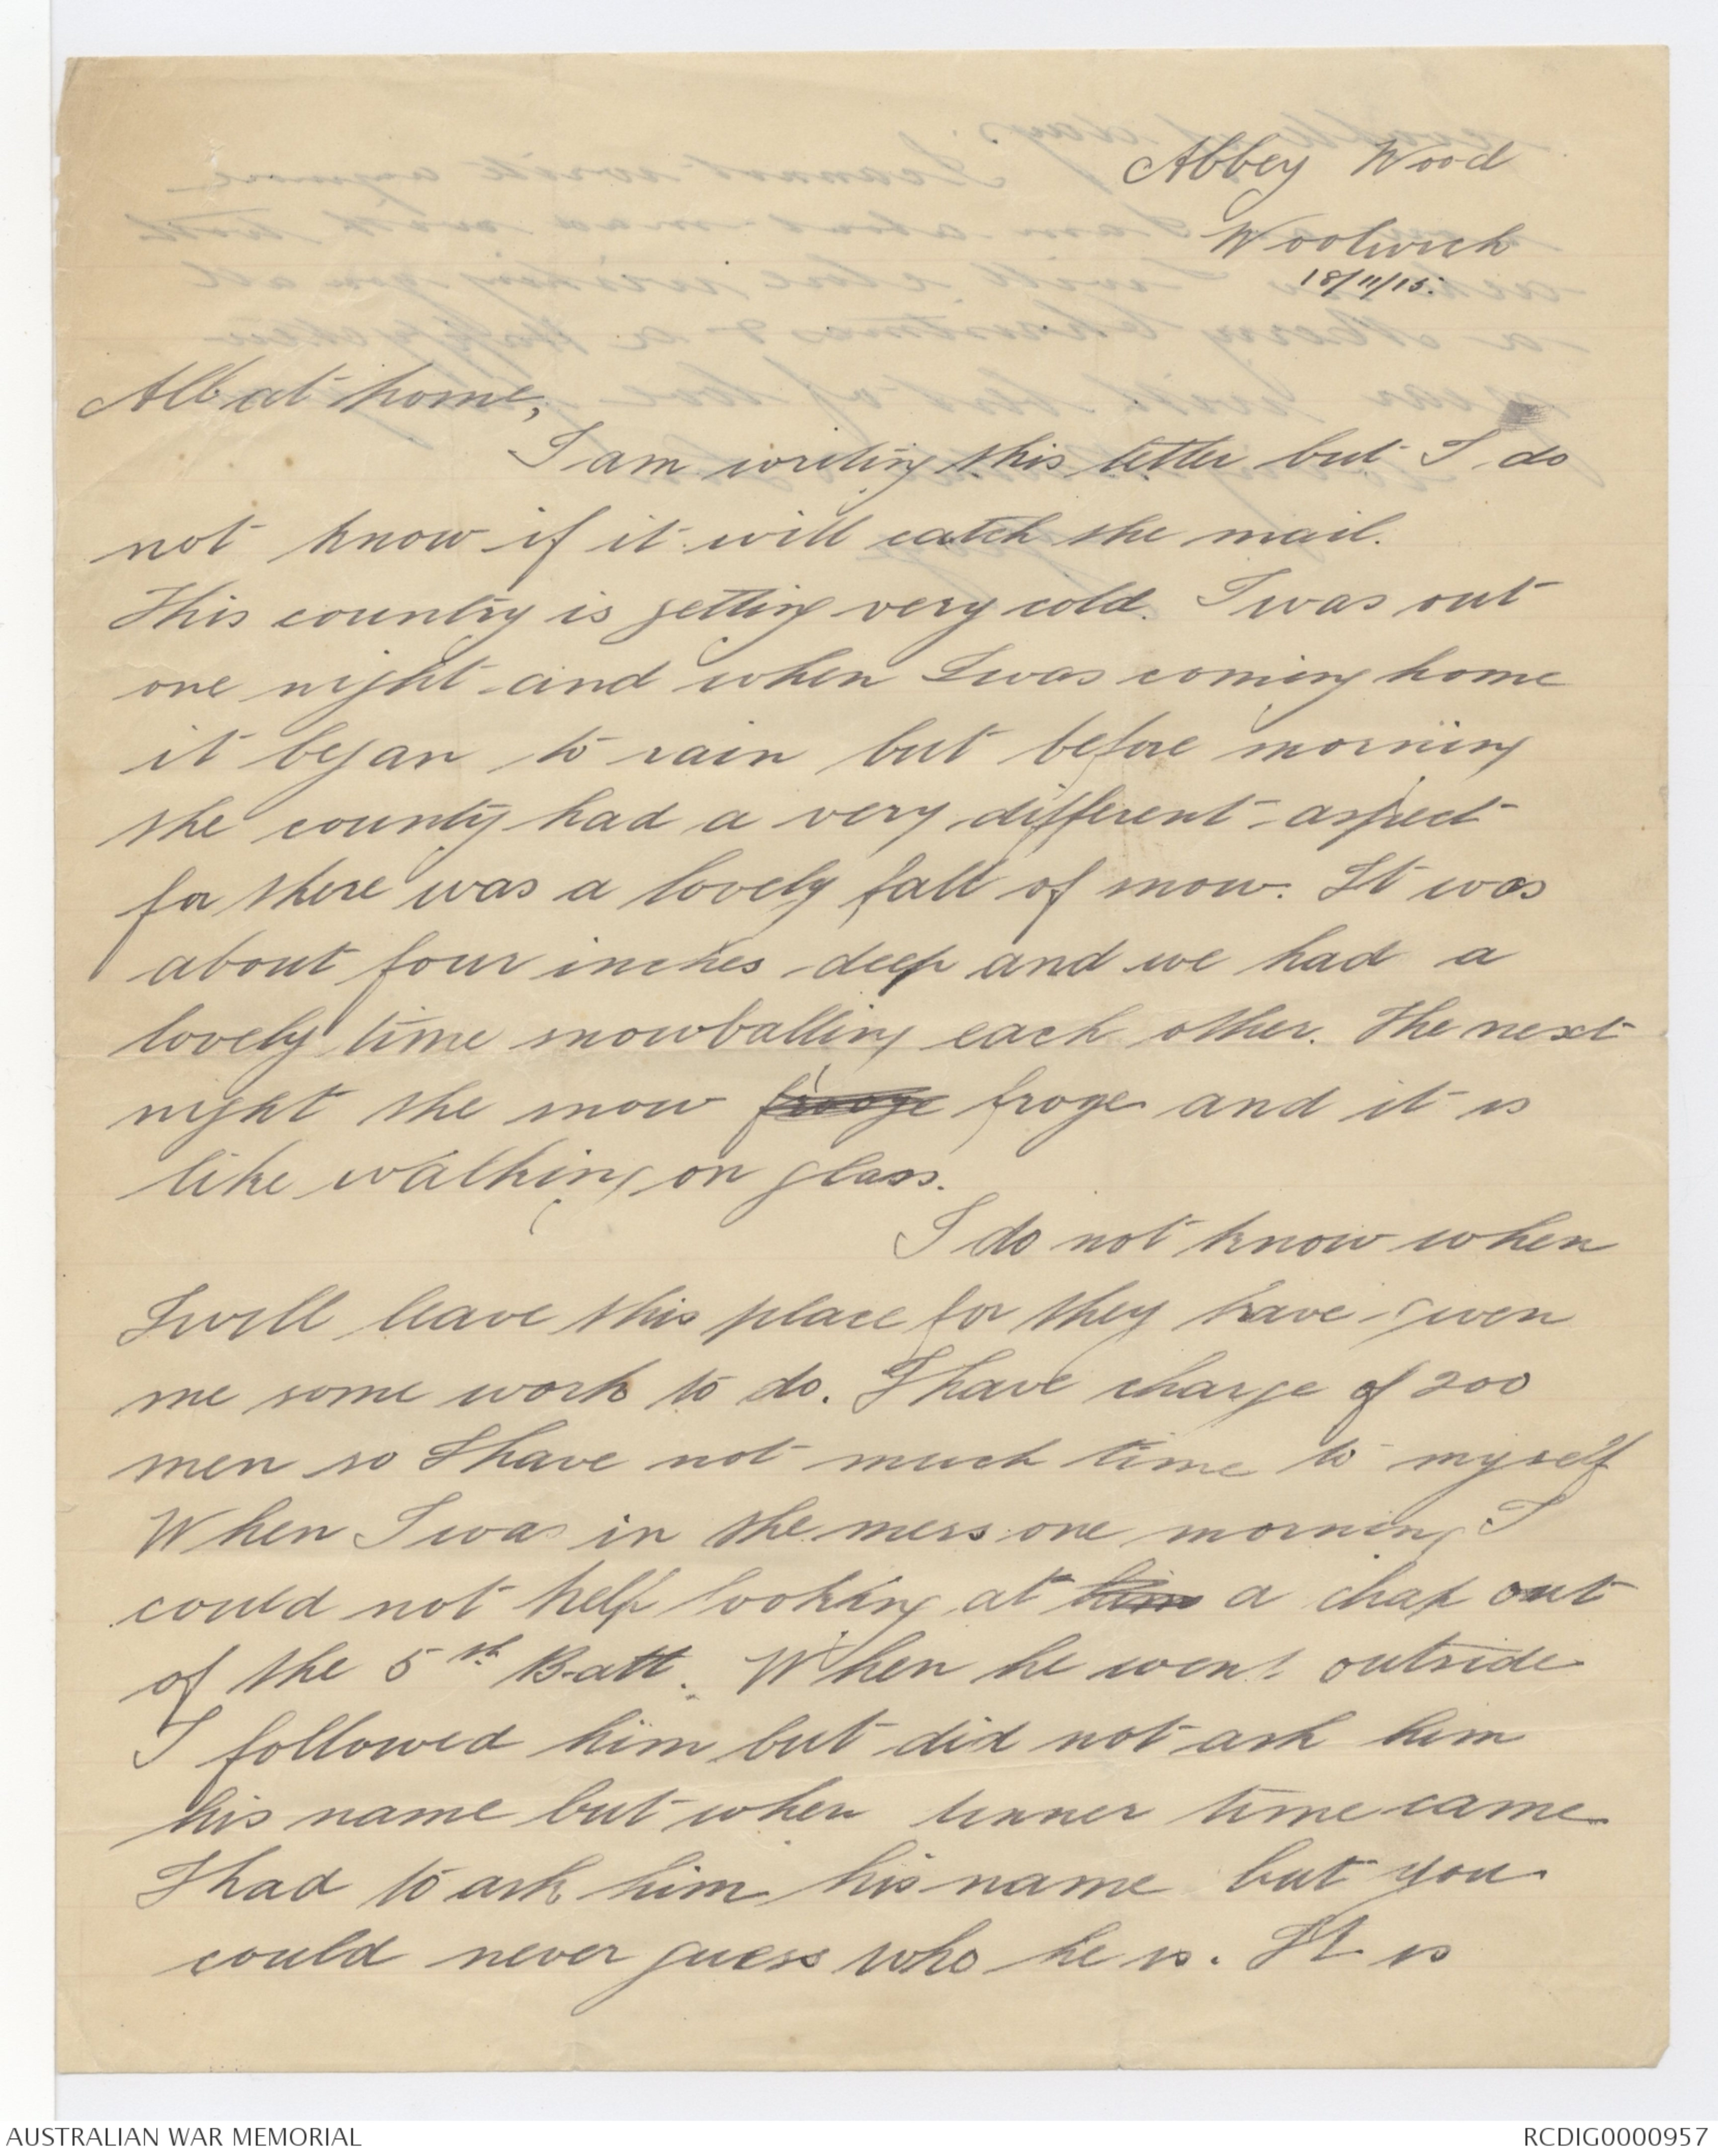 Abbey Wood
Woolwich
18/11/15.
All at home,
I am writing this letter but I do
not know if it will catch the mail.
This country is getting very cold. I was out
one night and when I was coming home
it began to rain but before morning
the county had a very different aspect
for there was a lovely fall of snow. It was
about four inches deep and we had a
lovely time snowballing each other. The next
night the snow frooze froze and it is
like walking on glass.
I do not know when
I will leave this place for they have given
me some work to do. I have charge of 200
men so I have not much time to myself
When I was in the mess one morning I
could not help looking at him a chap out
of the 5th Batt. When he went outside
I followed him but did not ask him
his name but when dinner time came
I had to ask him his name but you
could never guess who he is. It is
AUSTRALIAN WAR MEMORIAL
RCDIG0000957